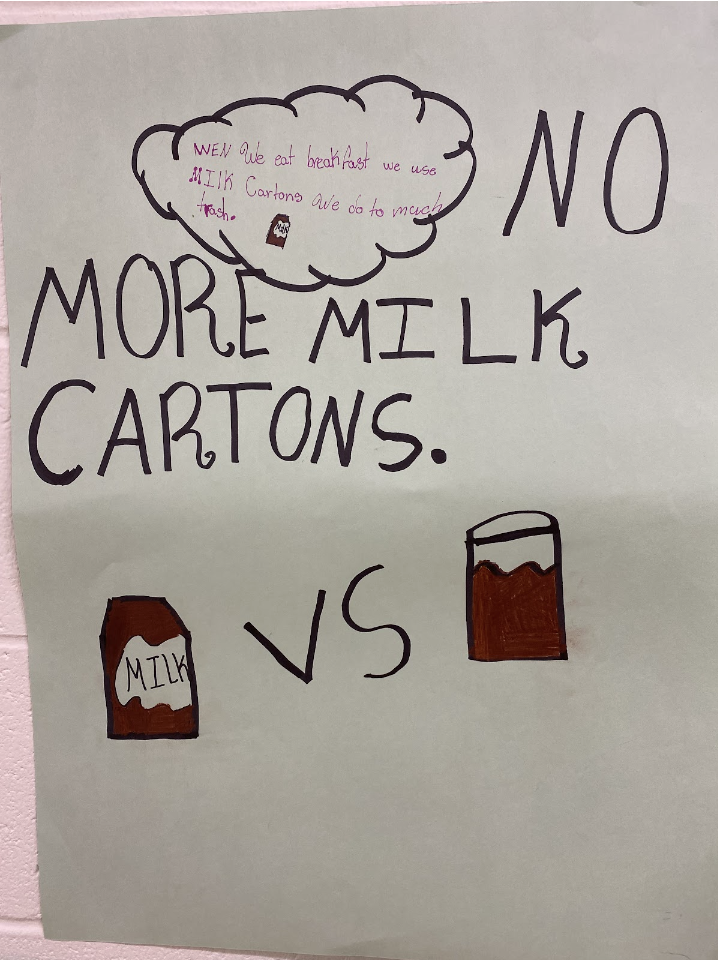 WEN We eat breakfast we use
MILK Cartons We do to much
trash.
MILK
NO
MORE MILK
CARTONS.
MILK
VS